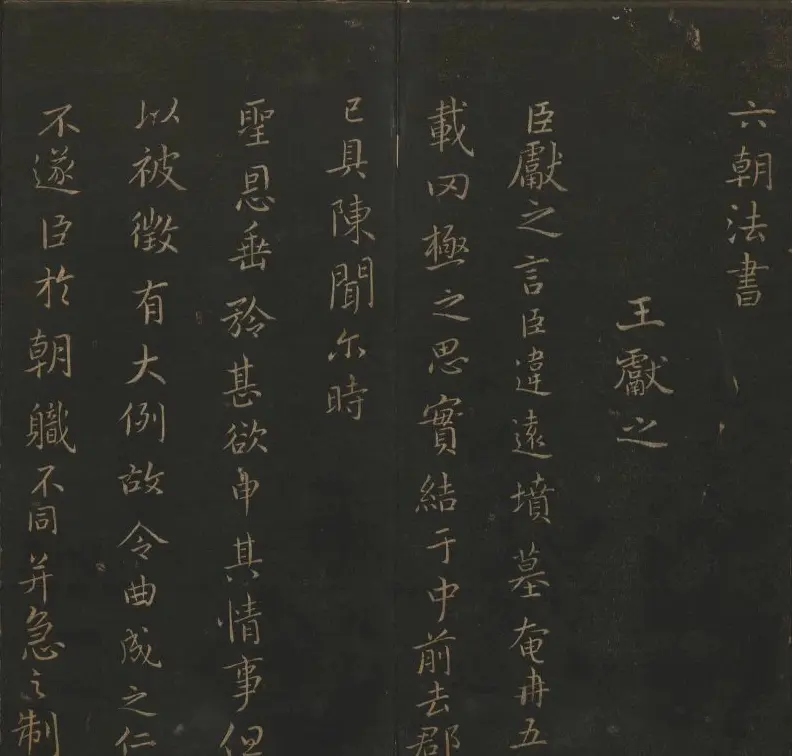 六朝法書
王獻之
臣獻之言臣違遠墳墓奄冉五
載罔極之思實結于中前去郡
已具陳聞尒時
聖恩垂矜甚欲申其情事但
以被徵有大例故令曲成之仁
不遂臣於朝職不同并急之制